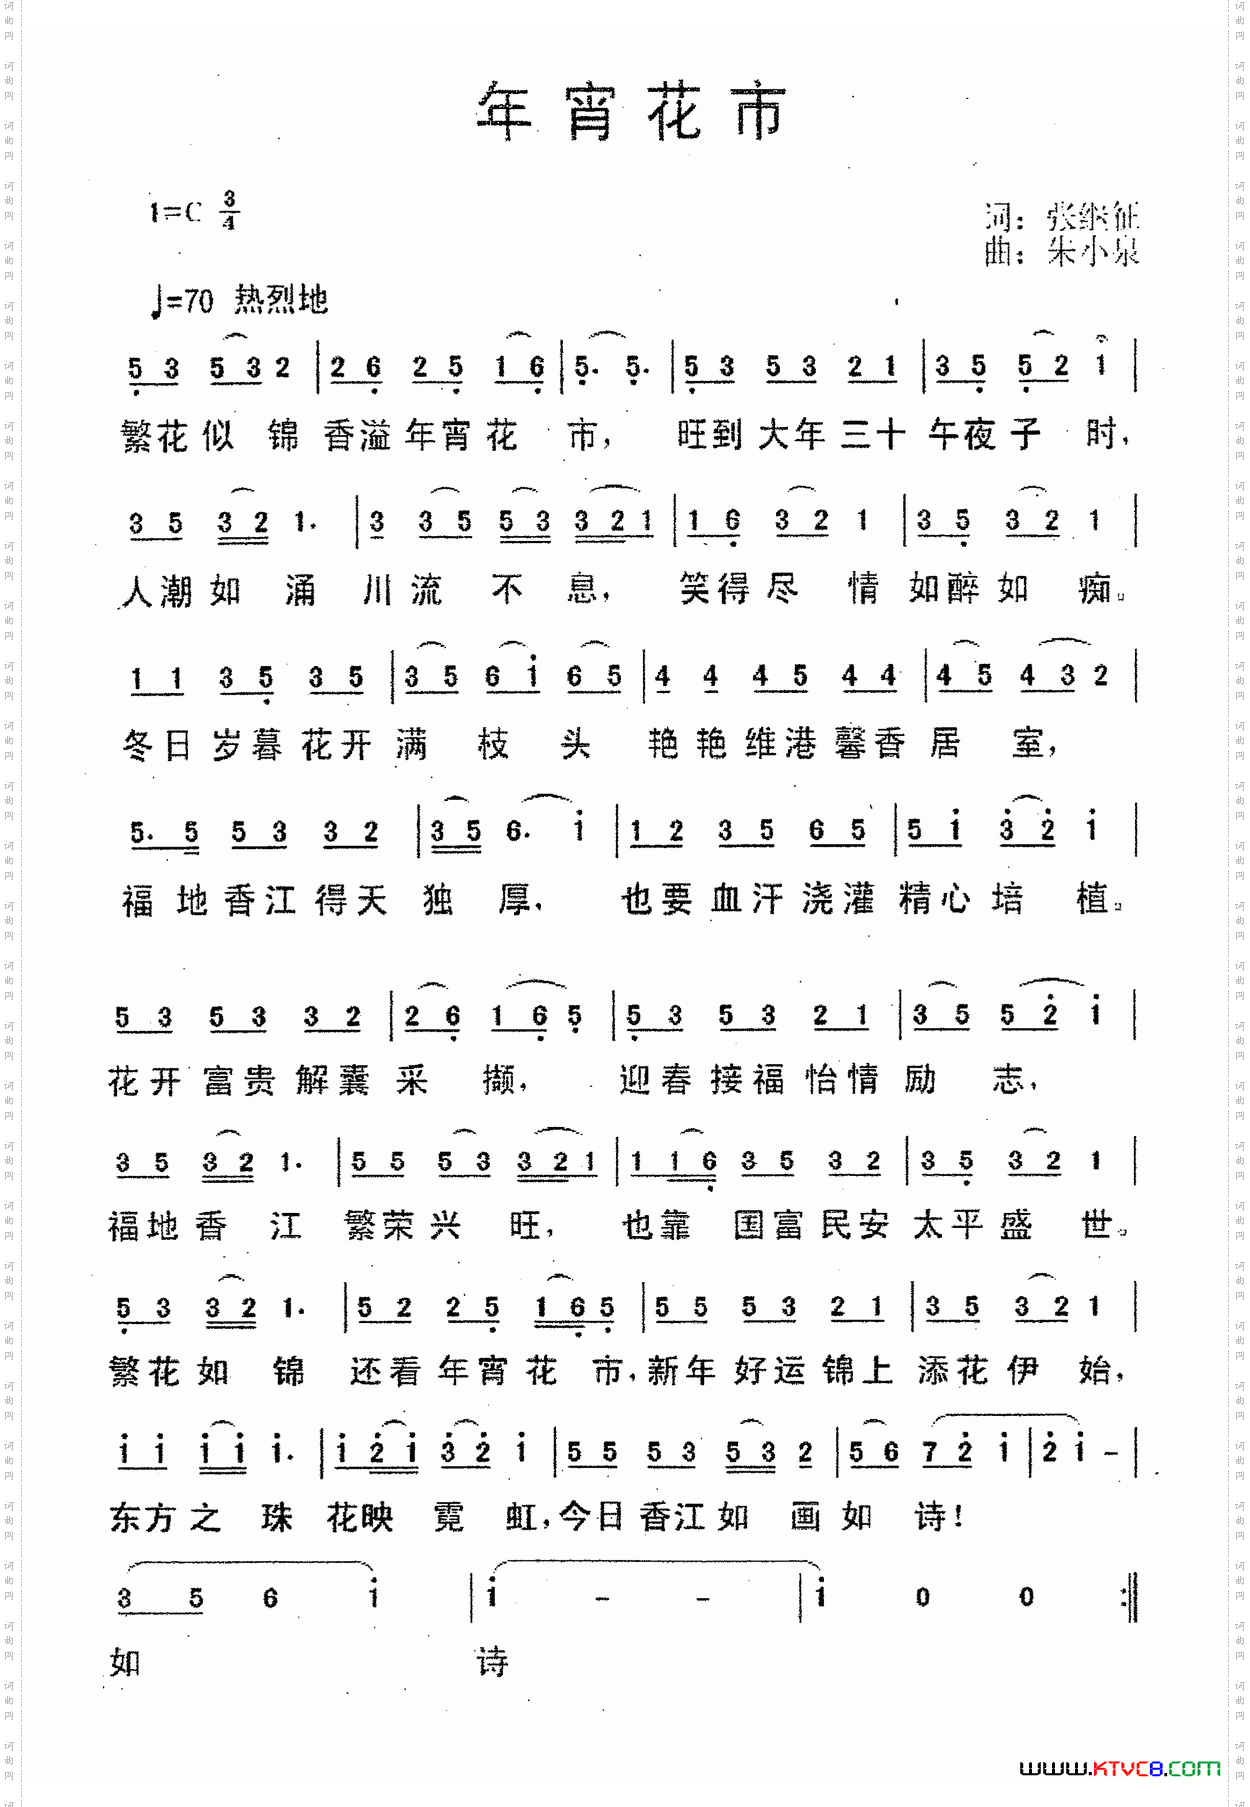 年宵花市
1=C 3/4
词：张继征
曲：朱小泉
♩=70 热烈地
5 3 5 3 2 | 2 6 2 5 1 6 | 5. 5. | 5 3 5 3 2 1 | 3 5 5 2 1 |
繁花似锦香溢年宵花市，旺到大年三十午夜子时，
3 5 3 2 1. | 3 3 5 5 3 3 2 1 | 1 6 3 2 1 | 3 5 3 2 1 |
人潮如涌川流不息，笑得尽情如醉如痴。
1 1 3 5 3 5 | 3 5 6 1 6 5 | 4 4 4 5 4 4 | 4 5 4 3 2 |
冬日岁暮花开满枝头艳艳维港馨香居室，
5. 5 5 3 3 2 | 3 5 6. 1 | 1 2 3 5 6 5 | 5 1 3 2 1 |
福地香江得天独厚，也要血汗浇灌精心培植。
5 3 5 3 3 2 | 2 6 1 6 5 | 5 3 5 3 2 1 | 3 5 5 2 1 |
花开富贵解囊采撷，迎春接福怡情励志，
3 5 3 2 1. | 5 5 5 3 3 2 1 | 1 1 6 3 5 3 2 | 3 5 3 2 1 |
福地香江繁荣兴旺，也靠国富民安太平盛世。
5 3 3 2 1. | 5 2 2 5 1 6 5 | 5 5 5 3 2 1 | 3 5 3 2 1 |
繁花如锦还看年宵花市，新年好运锦上添花伊始，
1 1 1 1 1. | 1 2 1 3 2 1 | 5 5 5 3 5 3 2 | 5 6 7 2 1 | 2 1 - |
东方之珠花映霓虹，今日香江如画如诗！
3 5 6 1 | 1 - - | 1 0 0 :||
如诗
www.KTVC8.com